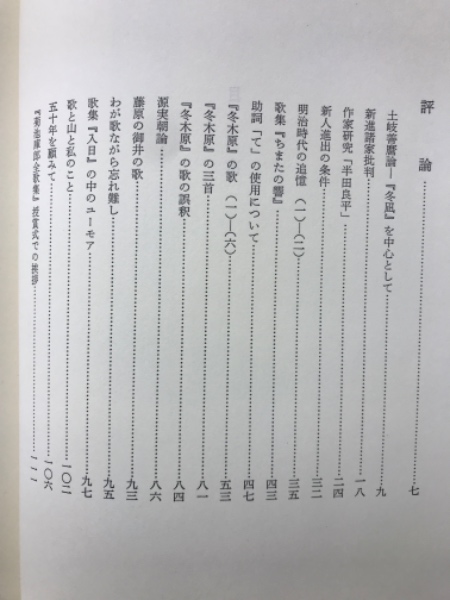 評論……七
土岐善麿論―『冬凪』を中心として……九
新進諸家批判……一八
作家研究「半田良平」……二四
新人進出の条件……三二
明治時代の追憶(一)―(二)……三五
歌集『ちまたの響』……四三
助詞「て」の使用について……四七
『冬木原』の歌(一)―(六)……五三
『冬木原』の三首……八一
『冬木原』の歌の誤釈……八四
源実朝論……八六
藤原の御井の歌……九三
わが歌ながら忘れ難し……九五
歌集『入日』の中のユーモア……九七
歌と山と私のこと……一〇二
五十年を顧みて……一〇六
『菊池庫郎全歌集』授賞式での挨拶……一一一